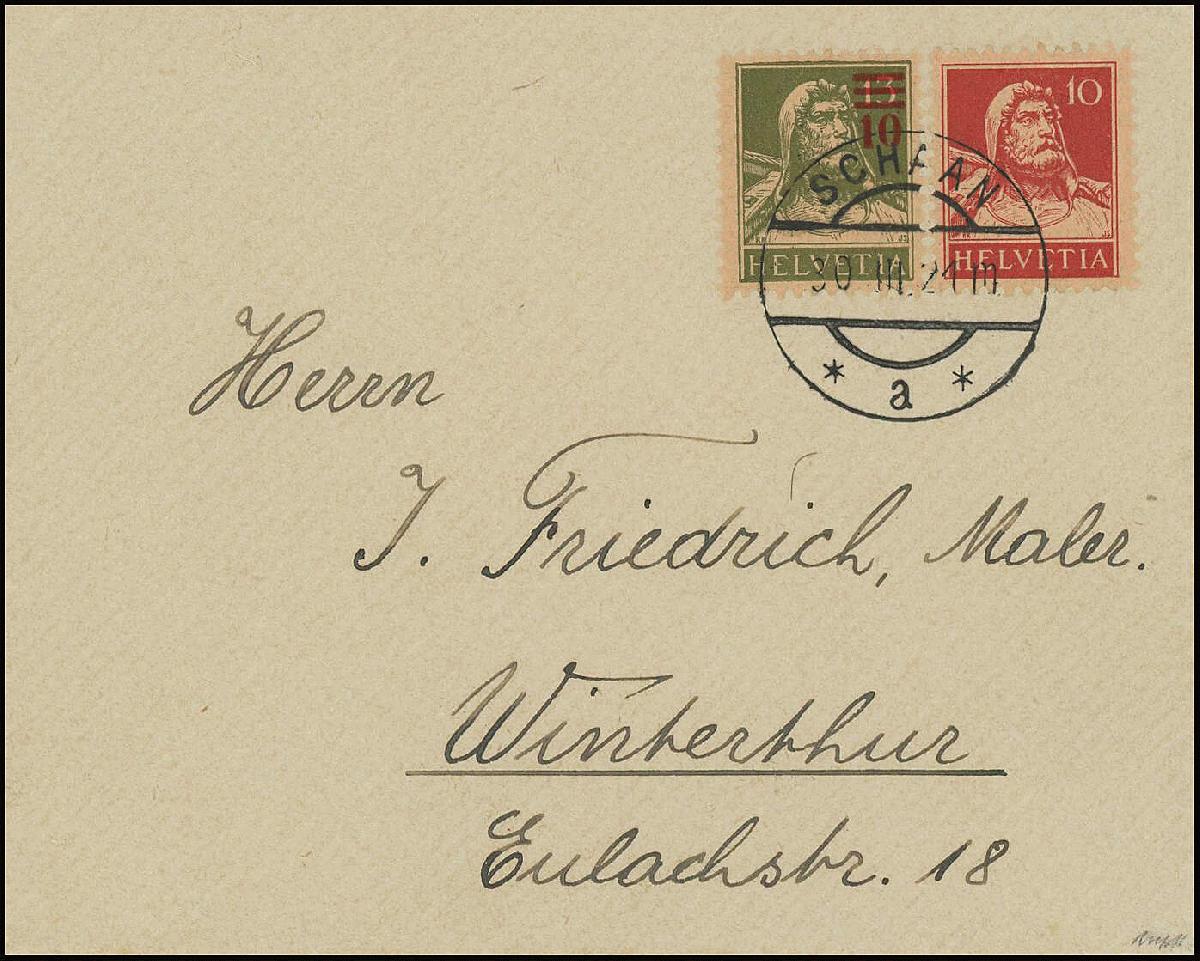 13 10
10
HELVETIA
HELVETIA
SCHAAN
30 III. 21
* a *
Herrn
J. Friedrich, Maler.
Winterthur
Eulachstr. 18